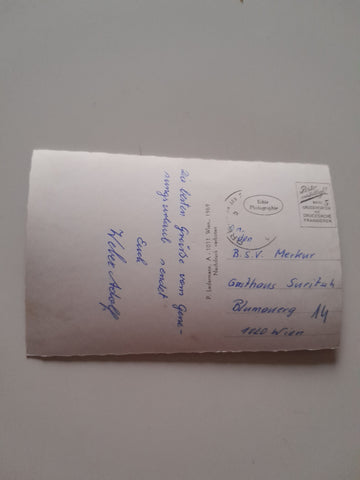 Die besten Grüße vom Gene-
sungsurlaub sendet
Euch
Weber Adolf
P. Ledermann, A - 1011 Wien, 1969
Nachdruck verboten
Echte
Photographie
Bitte
nicht
5
DRUCKSACHE
FRANKIEREN
B.S.V. Merkur
Gasthaus Suritah
Blumauerg 14
1020 Wien